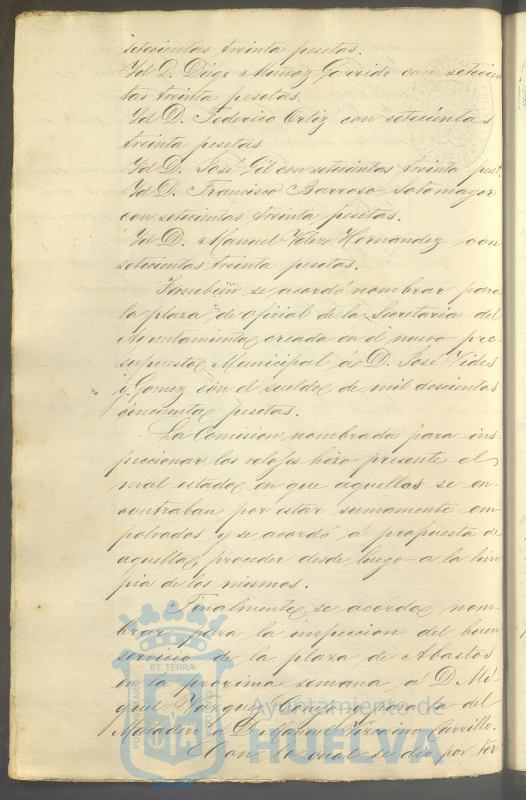 setecientas treinta pesetas.
Yd D. Diego Muñoz Garrido con setecien
tas treinta pesetas.
Yd D. Federico Ortiz con setecientas
treinta pesetas
Yd D. José Gil con setecientas treinta peset.
Yd D. Francisco Barroso Sotomayor
con setecientas treinta pesetas.
Yd D. Manuel Hernandez con
setecientas treinta pesetas.
Tambien se acordó nombrar para
la plaza de oficial de la Secretaria del
Ayuntamiento creada en el nuevo pre
supuesto Municipal á D. José Vides
y Gomez con el sueldo de mil doscientas
cincuenta pesetas.
La Comision nombrada para ins-
peccionar los relojes hizo presente el
mal estado en que aquellos se en-
contraban por estar sumamente em
polvados y se acordó á propuesta de
aquella proceder desde luego a la lim
pia de los mismos.
Finalmente se acordo nom-
brar para la inspeccion del buen
servicio de la plaza de Abastos
en la proxima semana á D. Mi-
guel Vazquez y para la del
Matadero á D. Manuel Vizcaino Carrillo.
Con lo cual se dió por ter
Ayuntamiento de
HUELVA